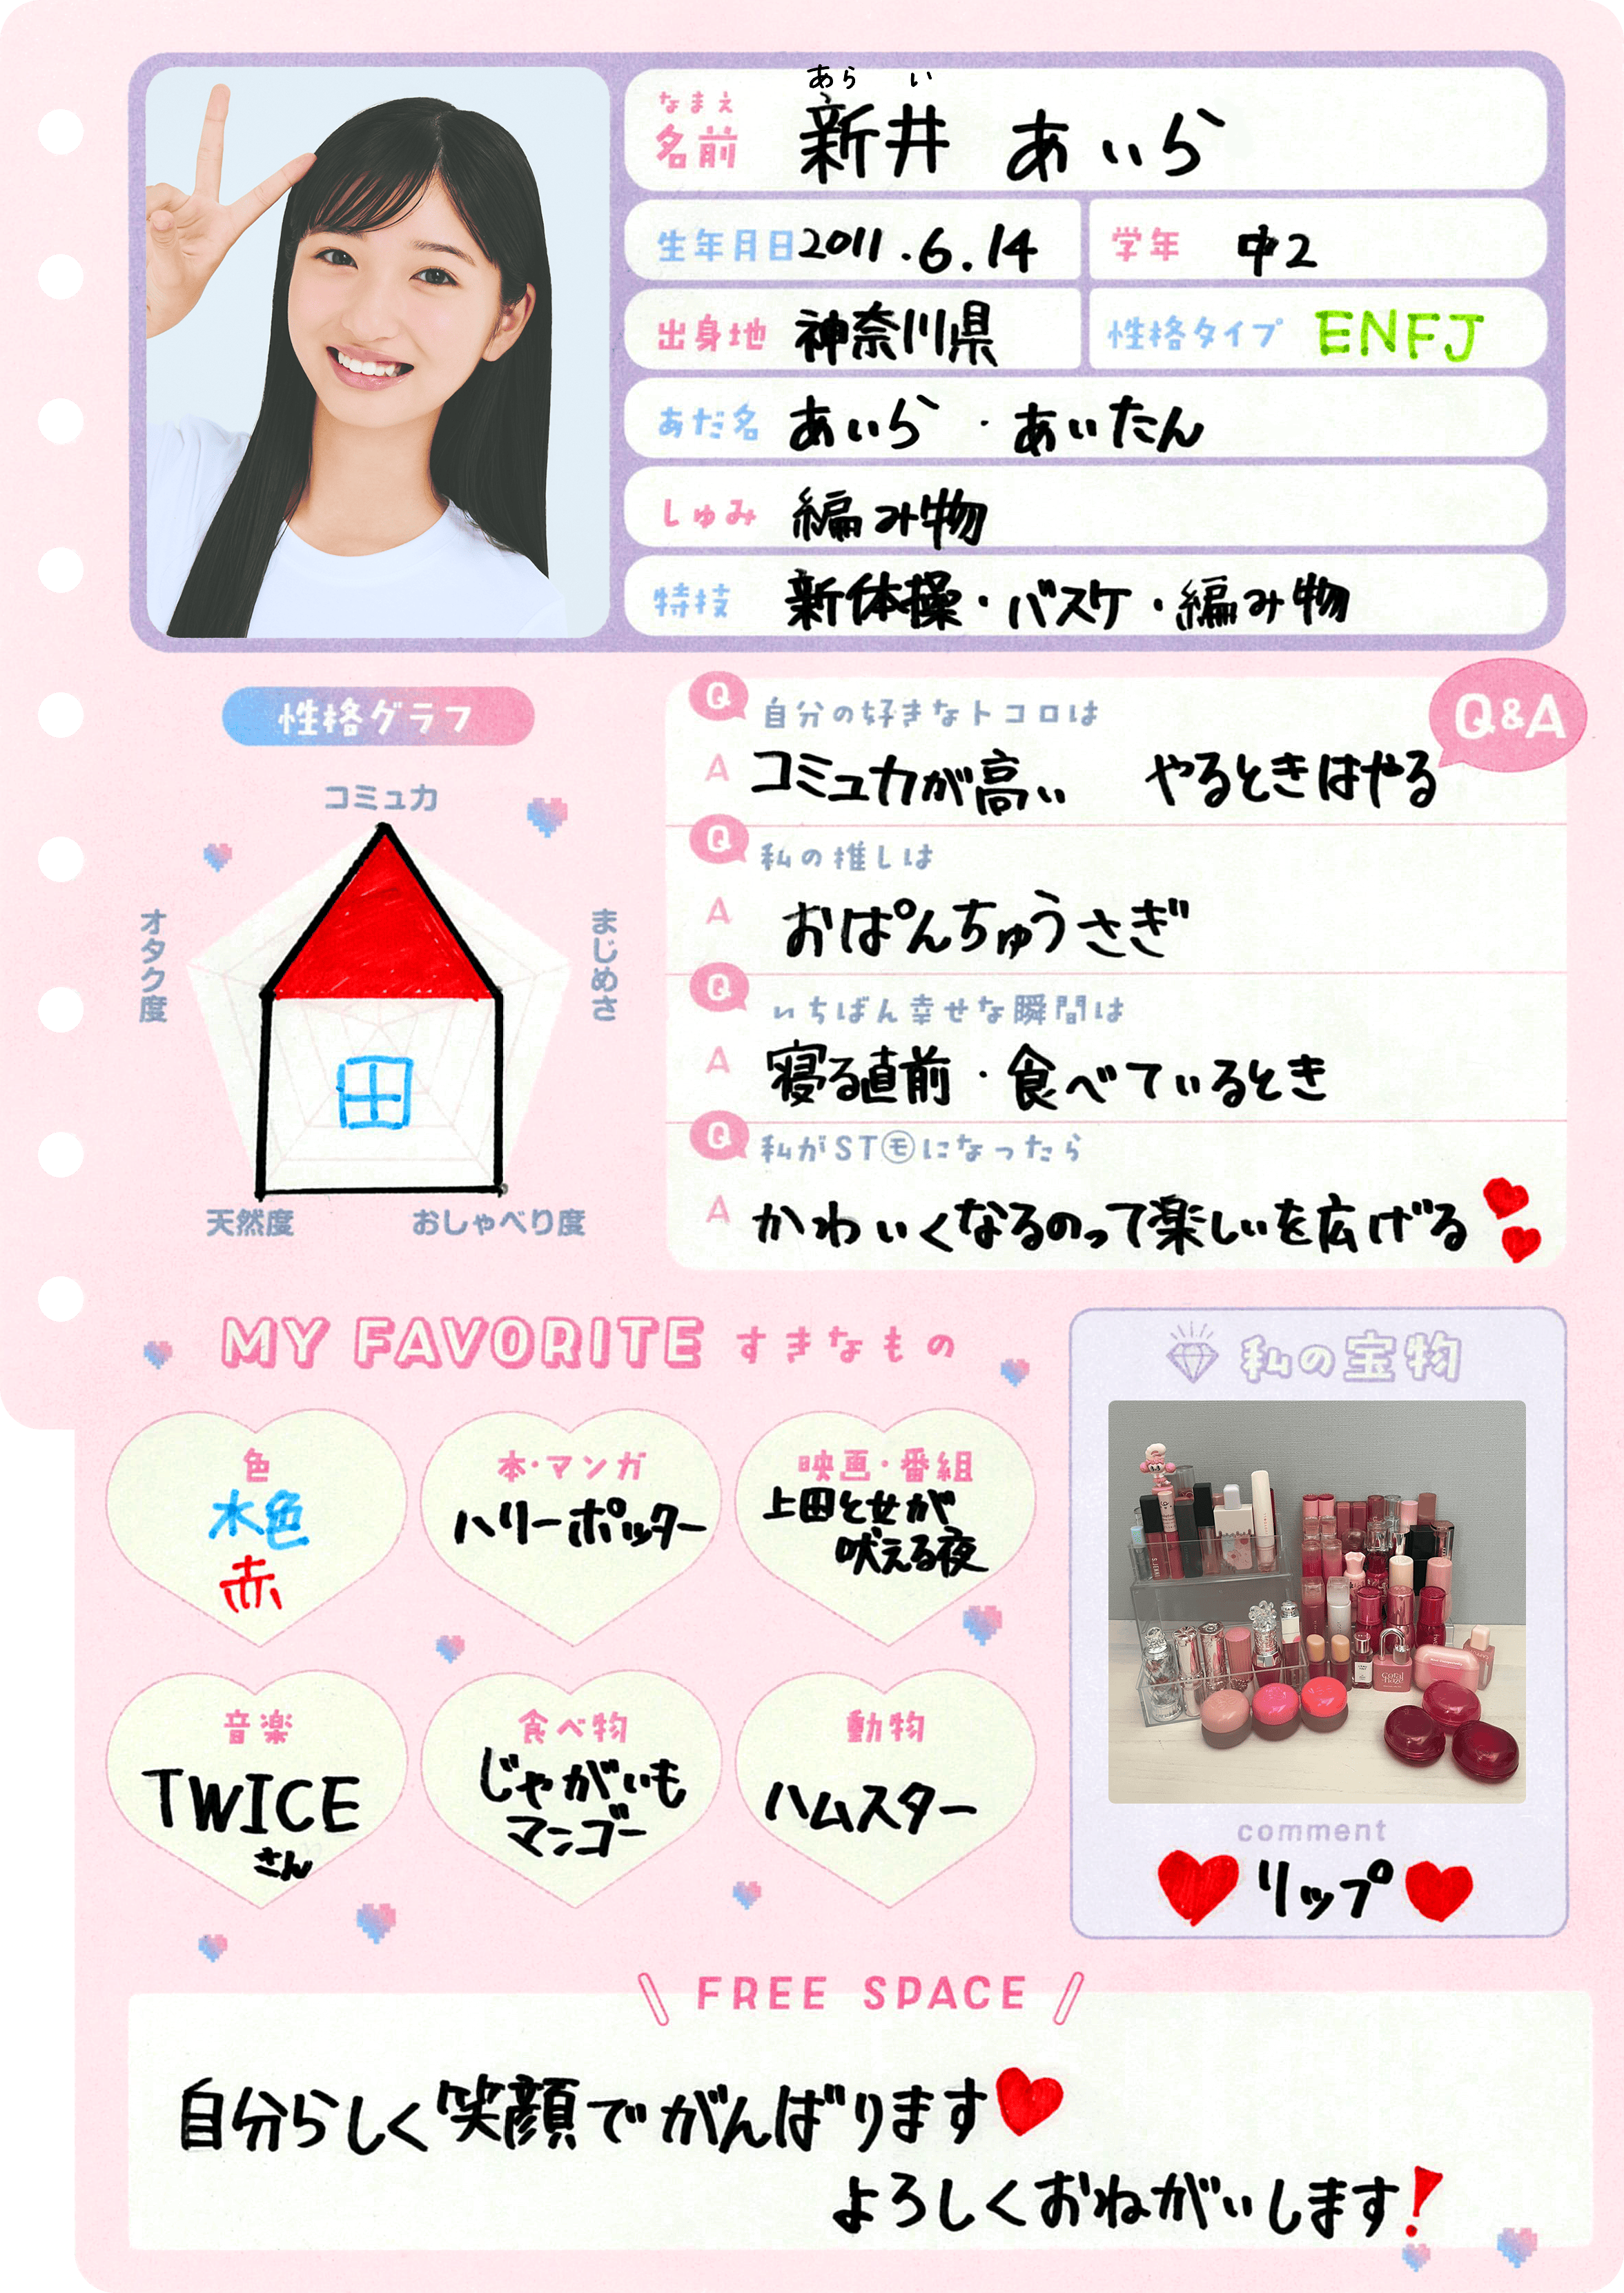 あら い
なまえ
名前 新井 あいら
生年月日 2011.6.14
学年 中2
出身地 神奈川県
性格タイプ ENFJ
あだ名 あいら・あいたん
しゅみ 編み物
特技 新体操・バスケ・編み物
性格グラフ
コミュ力
オタク度
まじめさ
天然度
おしゃべり度
Q&A
Q 自分の好きなトコロは
A コミュ力が高い やるときはやる
Q 私の推しは
A おぱんちゅうさぎ
Q いちばん幸せな瞬間は
A 寝る直前・食べているとき
Q 私がST㋲になったら
A かわいくなるのって楽しいを広げる
MY FAVORITE すきなもの
色
水色
赤
本・マンガ
ハリーポッター
映画・番組
上田と女が
吠える夜
音楽
TWICE
さん
食べ物
じゃがいも
マンゴー
動物
ハムスター
私の宝物
coral
haze
comment
リップ
FREE SPACE
自分らしく笑顔でがんばります
よろしくおねがいします!